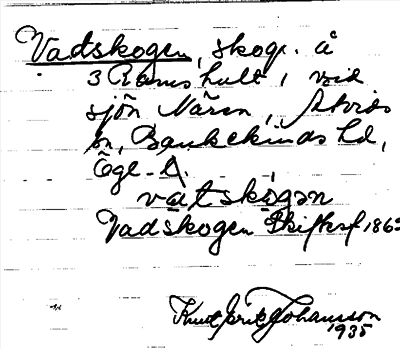 Vadskogen, skog. å
3 Ramshult, vid
sjön Nären, Atvids
sn, Bankekinds hd,
Ögl.
vatskogən
Vadskogen Skifteskf 186
Knut Johansson
1935